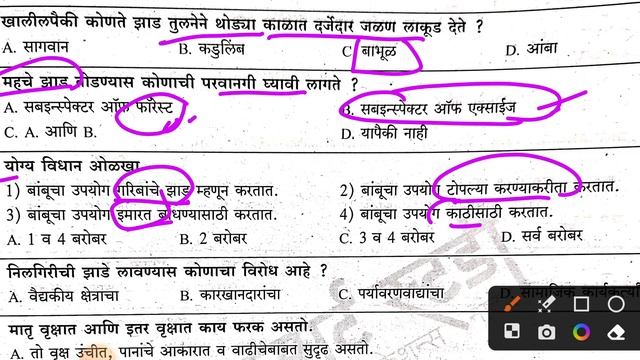 खालीलपैकी कोणते झाड तुलनेने थोड्या काळात दर्जेदार जळण लाकूड देते ?
A. सागवान B. कडुलिंब C बाभूळ D. आंबा
महूचे झाड तोडण्यास कोणाची परवानगी घ्यावी लागते ?
A. सबइन्स्पेक्टर ऑफ फॉरेस्ट B. सबइन्स्पेक्टर ऑफ एक्साईज
C. A. आणि B. D. यापैकी नाही
योग्य विधान ओळखा
1) बांबूचा उपयोग गरिबांचे झाड म्हणून करतात. 2) बांबूचा उपयोग टोपल्या करण्याकरीता करतात.
3) बांबूचा उपयोग इमारत बांधण्यासाठी करतात. 4) बांबूचा उपयोग काठीसाठी करतात.
A. 1 व 4 बरोबर B. 2 बरोबर C. 3 व 4 बरोबर D. सर्व बरोबर
निलगिरीची झाडे लावण्यास कोणाचा विरोध आहे ?
A. वैद्यकीय क्षेत्राचा B. कारखानदारांचा C. पर्यावरणवाद्यांचा D. सामाजिक कार्यकर्त्यां
मातृ वृक्षात आणि इतर वृक्षात काय फरक असतो.
A. तो वृक्ष उंचीत, पानांचे आकारात व वाढीचेबाबत सुदृढ असतो.